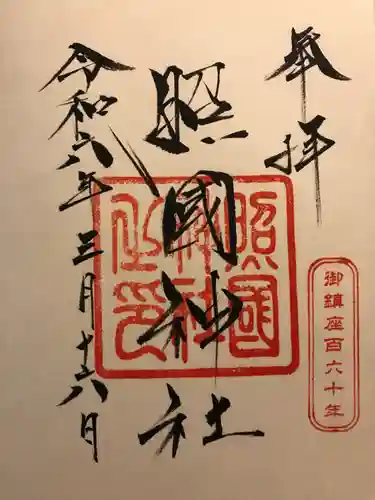 奉拝
照國神社
令和六年三月十六日
照國神社之印
御鎮座百六十年